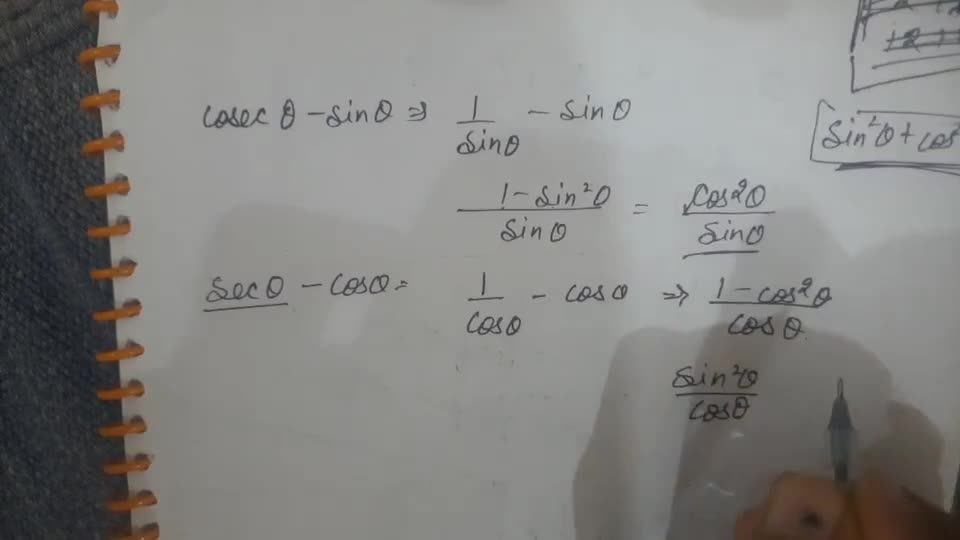 cosec θ - sinθ ⇒ 1/sinθ - sinθ
sin²θ + cos
1 - sin²θ/sinθ = cos²θ/sinθ
secθ - cosθ = 1/cosθ - cosθ ⇒ 1 - cos²θ/cosθ
sin²θ/cosθ